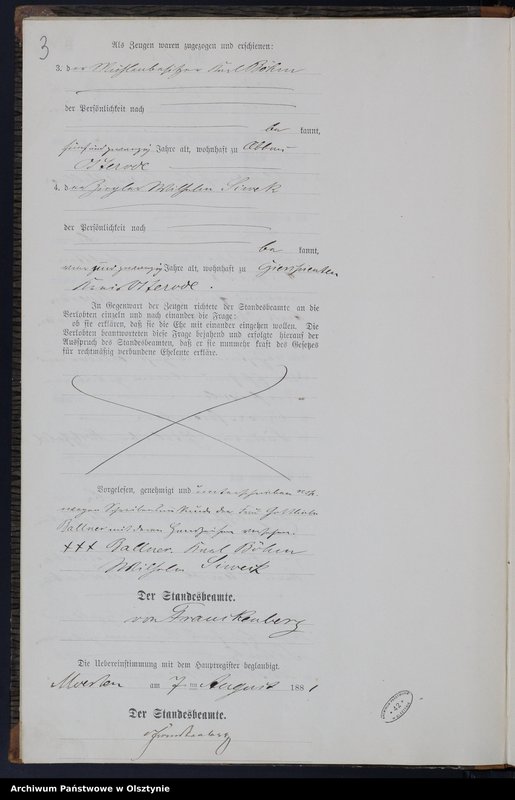 3
Als Zeugen waren zugezogen und erschienen:
3. der Mühlenbesitzer Karl Böhm
der Persönlichkeit nach
be kannt,
fünfundzwanzig Jahre alt, wohnhaft zu Abbau
Osterode
4. der Ziegler Wilhelm Siweck
der Persönlichkeit nach
be kannt,
undzwanzig Jahre alt, wohnhaft zu
Kreis Osterode.
In Gegenwart der Zeugen richtete der Standesbeamte an die
Verlobten einzeln und nach einander die Frage:
ob sie erklären, daß sie die Ehe mit einander eingehen wollen. Die
Verlobten beantworteten diese Frage bejahend und erfolgte hierauf der
Ausspruch des Standesbeamten, daß er sie nunmehr kraft des Gesetzes
für rechtmäßig verbundene Eheleute erkläre.
Vorgelesen, genehmigt und unterschrieben und
wegen Schreibensunkunde der Frau Gottliebe
Ballner mit deren Handzeichen versehen.
+++ Ballner. Karl Böhm
Wilhelm Siweck
Der Standesbeamte.
von Franckenberg
Die Uebereinstimmung mit dem Hauptregister beglaubigt.
am 7ten August 1881
Der Standesbeamte.
vFranckenberg
42
Archiwum Państwowe w Olsztynie